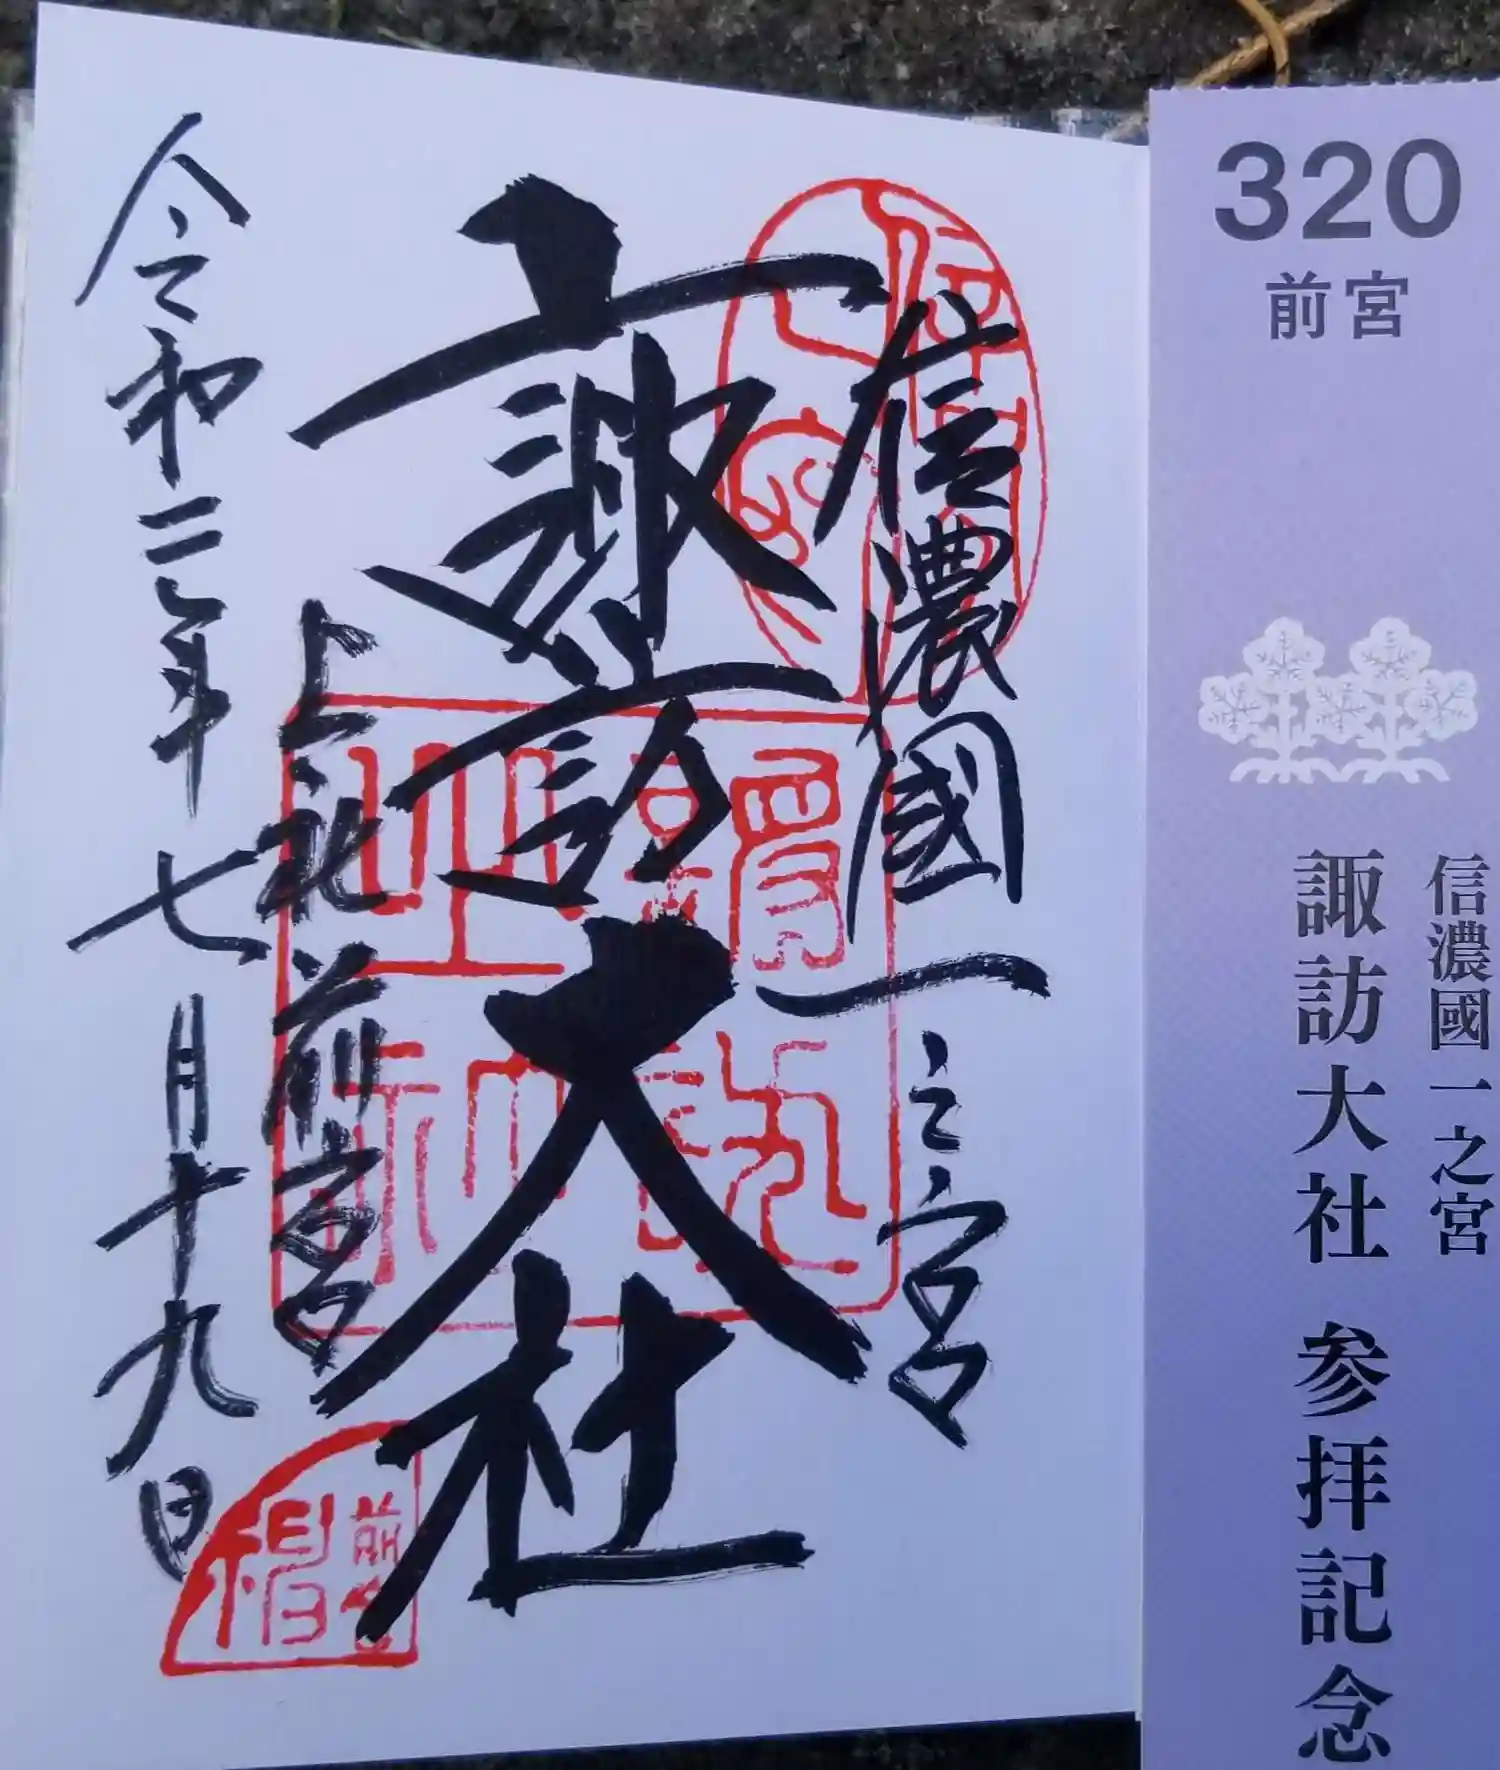 信濃國一之宮
諏訪大社
上社前宮
令和二年七月十九日
前宮
320
前宮
信濃國一之宮
諏訪大社 参拝記念